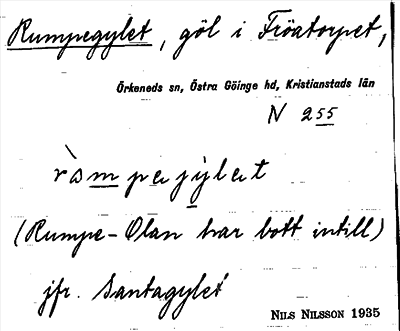 Rumpegylet, göl i Fröatorpet,
Örkeneds sn, Östra Göinge hd, Kristianstads län
N 255
(Rumpe-Olan har bott intill)
jfr. Santagylet
NILS NILSSON 1935